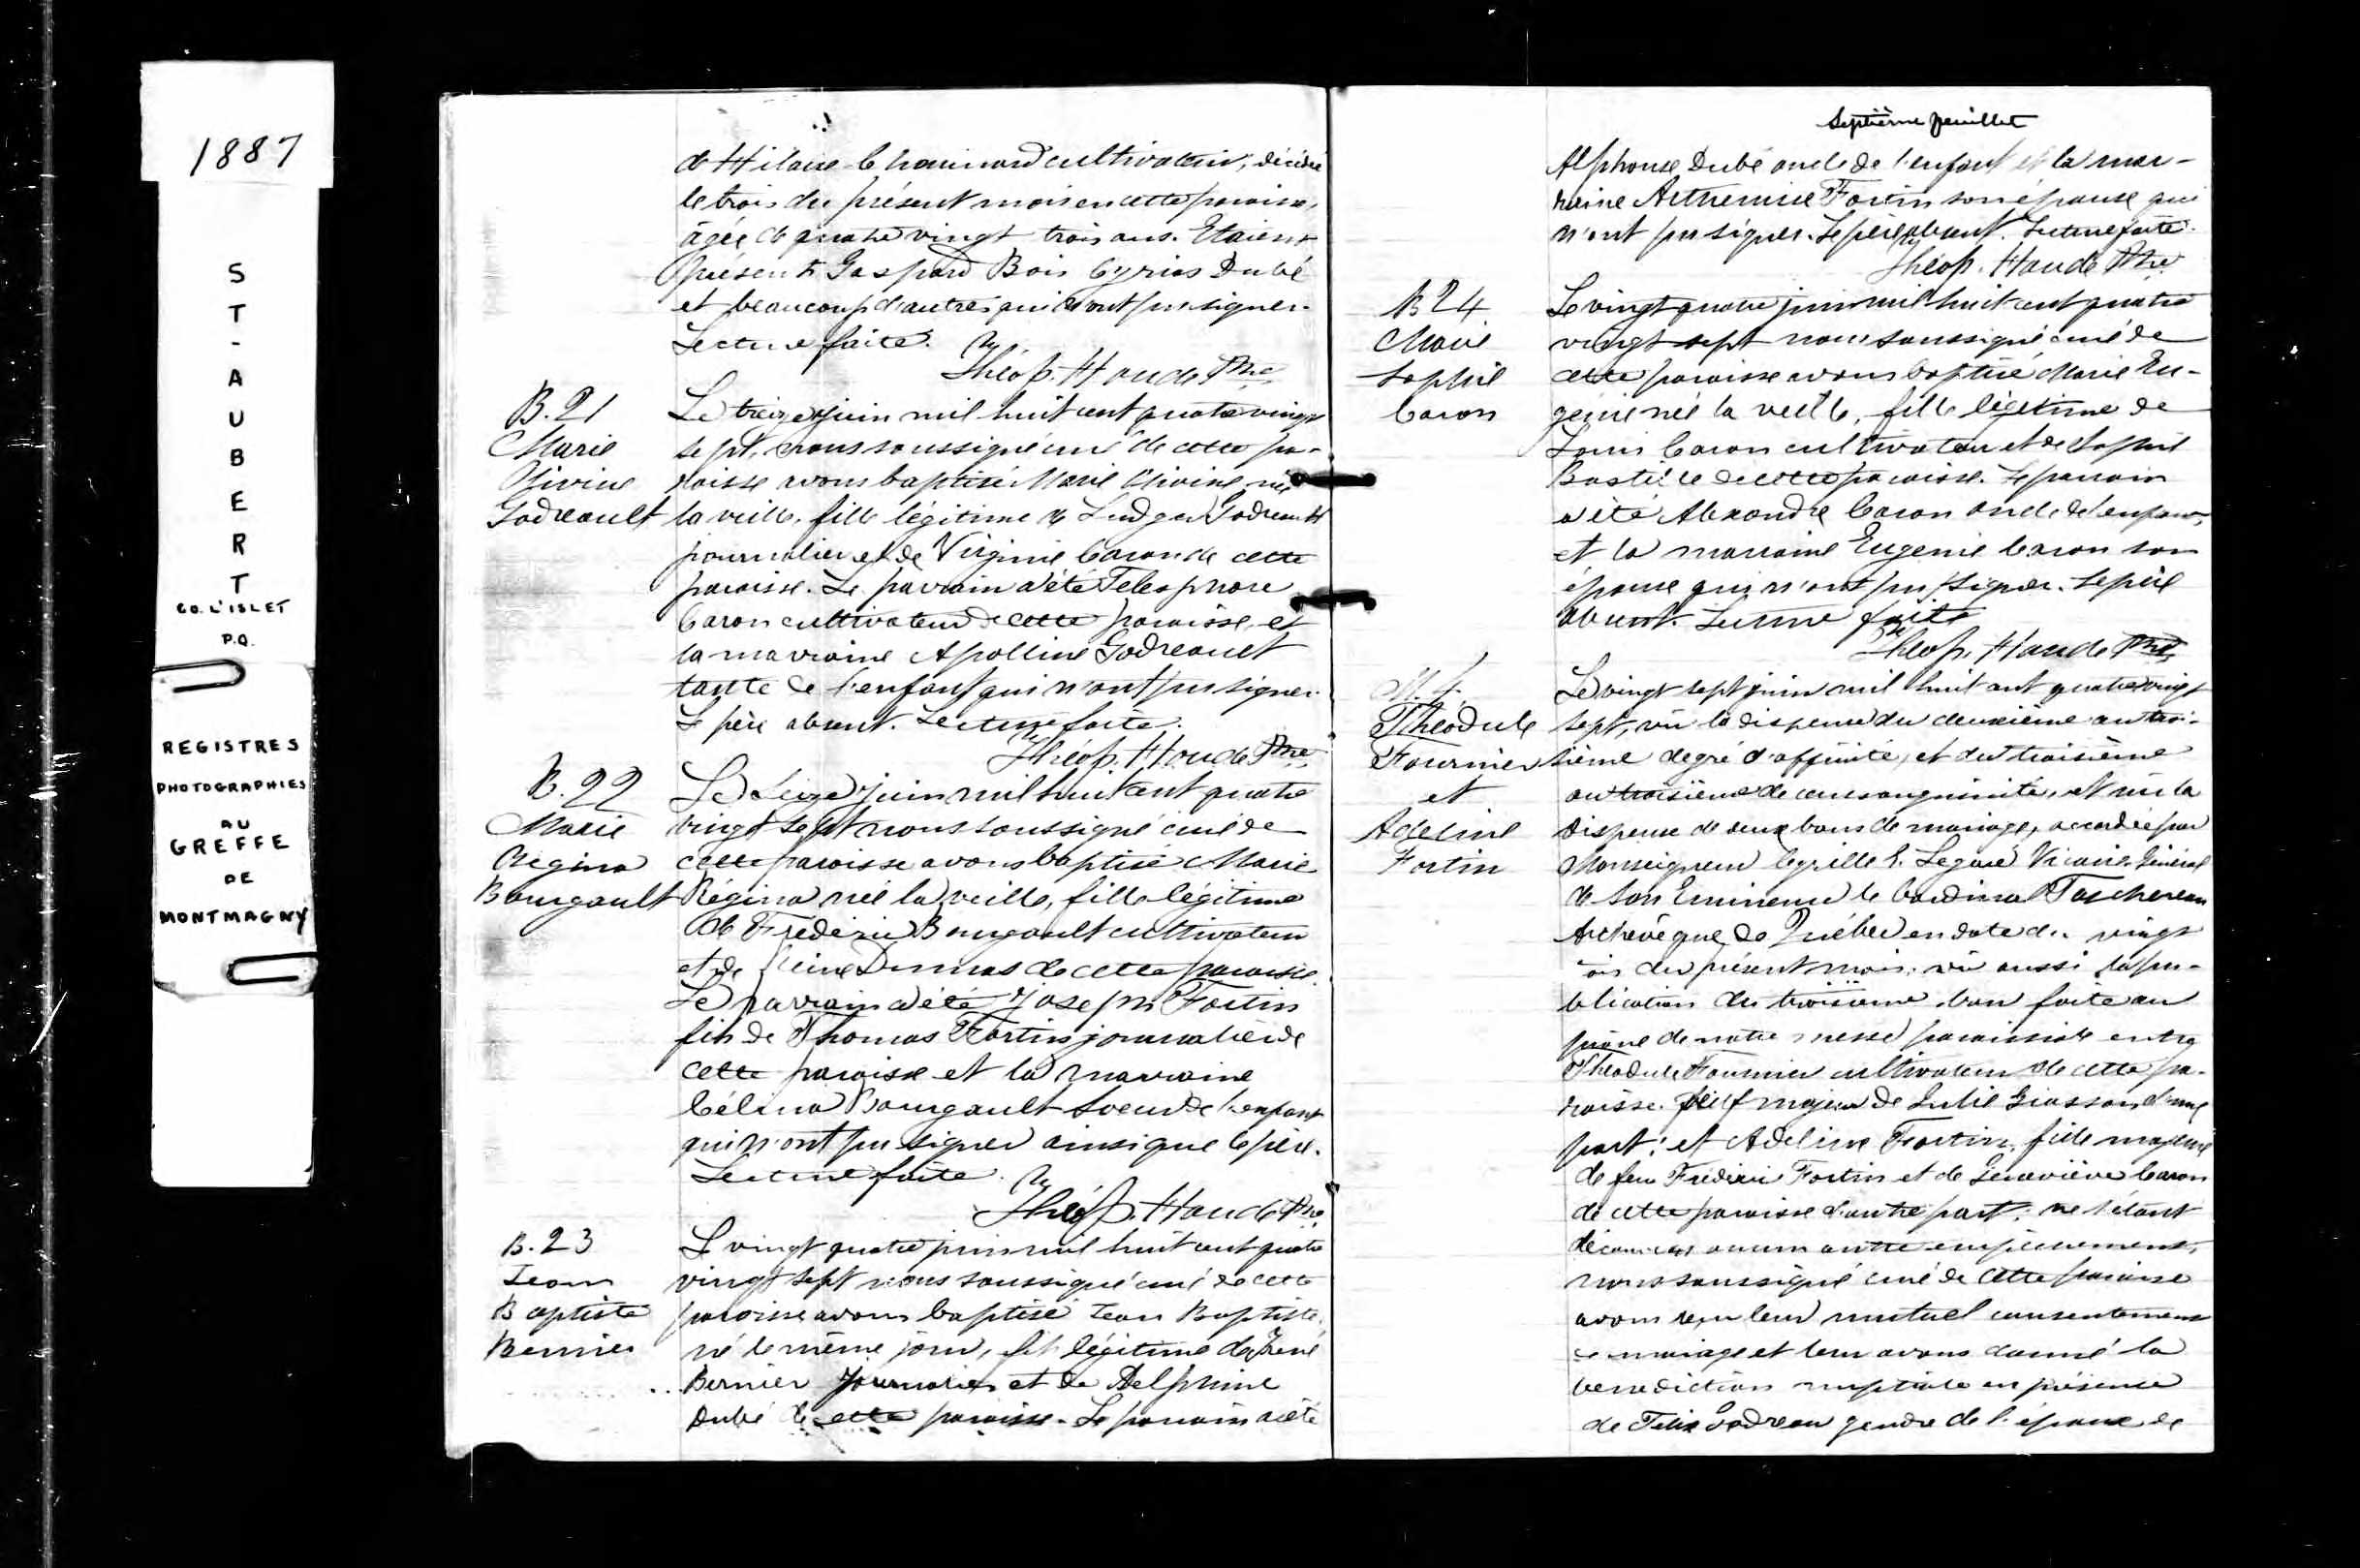 1887
ST-AUBERT
CO. L'ISLET
P.Q.
REGISTRES
PHOTOGRAPHIES
AU
GREFFE
DE
MONTMAGNY
de Hilaire Chouinard cultivateur, décédé
le trois du présent mois en cette paroisse,
âgée de quatre vingt trois ans. Etaient
présents Gaspard Bois Cyrias Dubé
et beaucoup d'autres qui n'ont pu signer.
Lecture faite.
Théop. Houde Ptre
B. 21
Marie
Godreault
Le treize juin mil huit cent quatre vingt
sept, nous soussigné curé de cette pa-
roisse avons baptisé Marie née
la veille, fille légitime de Ludger Godreault
journalier et de Virginie Caron de cette
paroisse. Le parrain a été Telesphore
Caron cultivateur de cette paroisse et
la marraine Apolline Godreault
tante de l'enfant qui n'ont pu signer.
Le père absent. Lecture faite.
Théop. Houde Ptre
B. 22
Marie
Regina
Bourgault
Le seize juin mil huit cent quatre
vingt sept nous soussigné curé de
cette paroisse avons baptisé Marie
Régina née la veille, fille légitime
de Frédéric Bourgault cultivateur
et de Dumas de cette paroisse.
Le parrain a été Joseph Fortin
fils de Thomas Fortin journalier de
cette paroisse et la marraine
Célina Bourgault soeur de l'enfant
qui n'ont pu signer ainsi que le père.
Lecture faite.
Théop. Houde Ptre
B. 23
Jean
Baptiste
Bernier
Le vingt quatre juin mil huit cent quatre
vingt sept nous soussigné curé de cette
paroisse avons baptisé Jean Baptiste,
né le même jour, fils légitime de
Bernier journalier et de Delphine
Dubé de cette paroisse. Le parrain a été
Septième feuillet
Alphonse Dubé oncle de l'enfant et la mar-
raine Arthemise Fortin son épouse qui
n'ont pu signer. Le père absent. Lecture faite.
Théop. Houde Ptre
B 24
Marie
Sophie
Caron
Le vingt quatre juin mil huit cent quatre
vingt sept nous soussigné curé de
cette paroisse avons baptisé Marie Eu-
génie née la veille, fille légitime de
Louis Caron cultivateur et de Sophie
de cette paroisse. Le parrain
a été Alexandre Caron oncle de l'enfant,
et la marraine Eugenie Caron son
épouse qui n'ont pu signer. Le père
absent. Lecture faite
Théop. Houde Ptre
M. 4.
Théodule
Fournier
et
Adeline
Fortin
Le vingt sept juin mil huit cent quatre vingt
sept, vu la dispense du deuxième au troi-
sième degré d'affinité, et du troisième
au troisième de consanguinité, et vu la
dispense de deux bans de mariage, accordée par
Monseigneur Cyrille E. Legaré Vicaire Général
de Son Eminence le Cardinal Taschereau
Archevêque de Québec en date du vingt
du présent mois; vu aussi la pu-
blication du troisième ban faite au
prône de notre messe paroissiale entre
Théodule Fournier cultivateur de cette pa-
roisse. veuf majeur de Julie Giasson d'une
part; et Adeline Fortin, fille majeure
de feu Fréderic Fortin et de Geneviève Caron
de cette paroisse d'autre part; ne s'étant
découvert aucun autre empêchement,
nous soussigné curé de cette paroisse
avons reçu leur mutuel consentement
de mariage et leur avons donné la
benediction nuptiale en présence
de Félix Godreau gendre de l'époux et